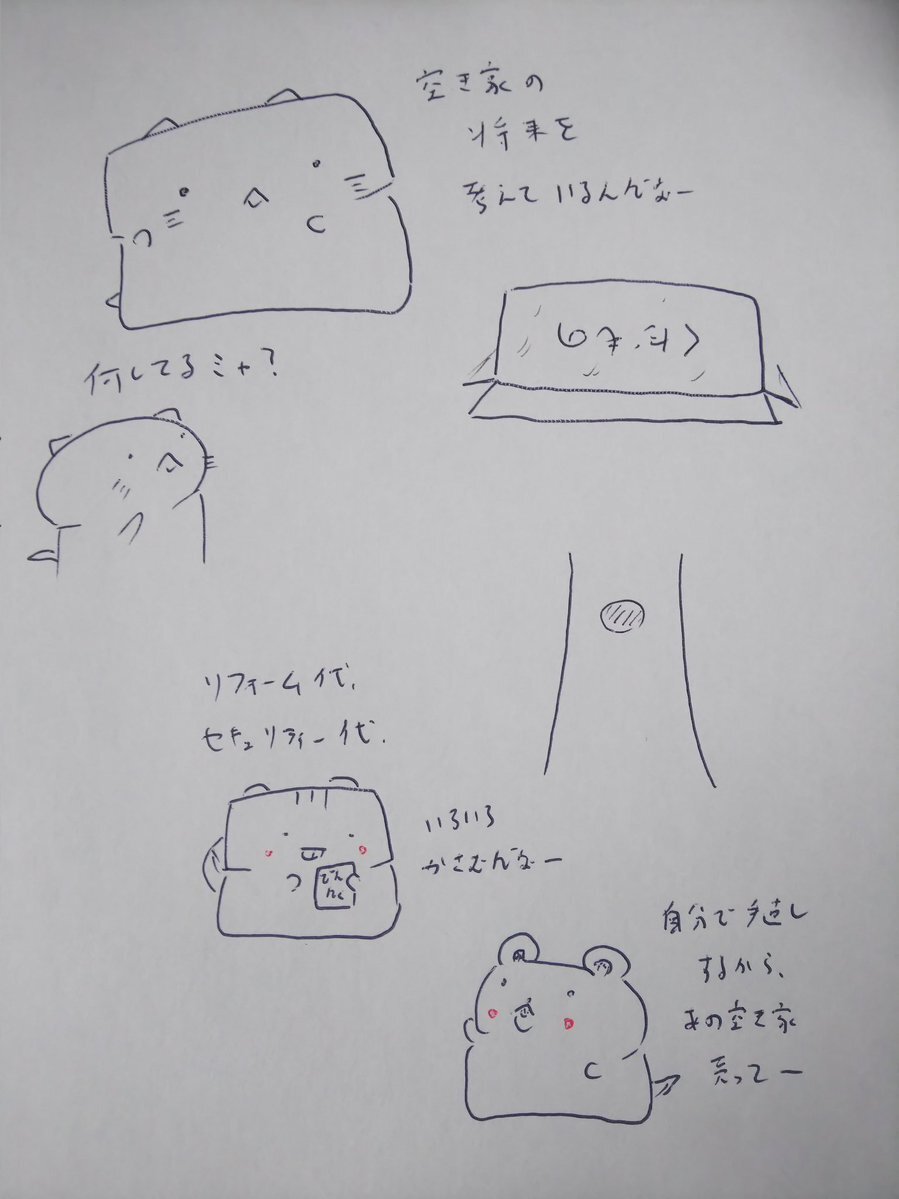 空き家の
将来を
考えているんだなー
くだもの
何してるミャ？
リフォーム代、
セキュリティー代、
いろいろ
かさむんだなー
でん
たく
自分で手直し
するから、
あの空き家
売ってー